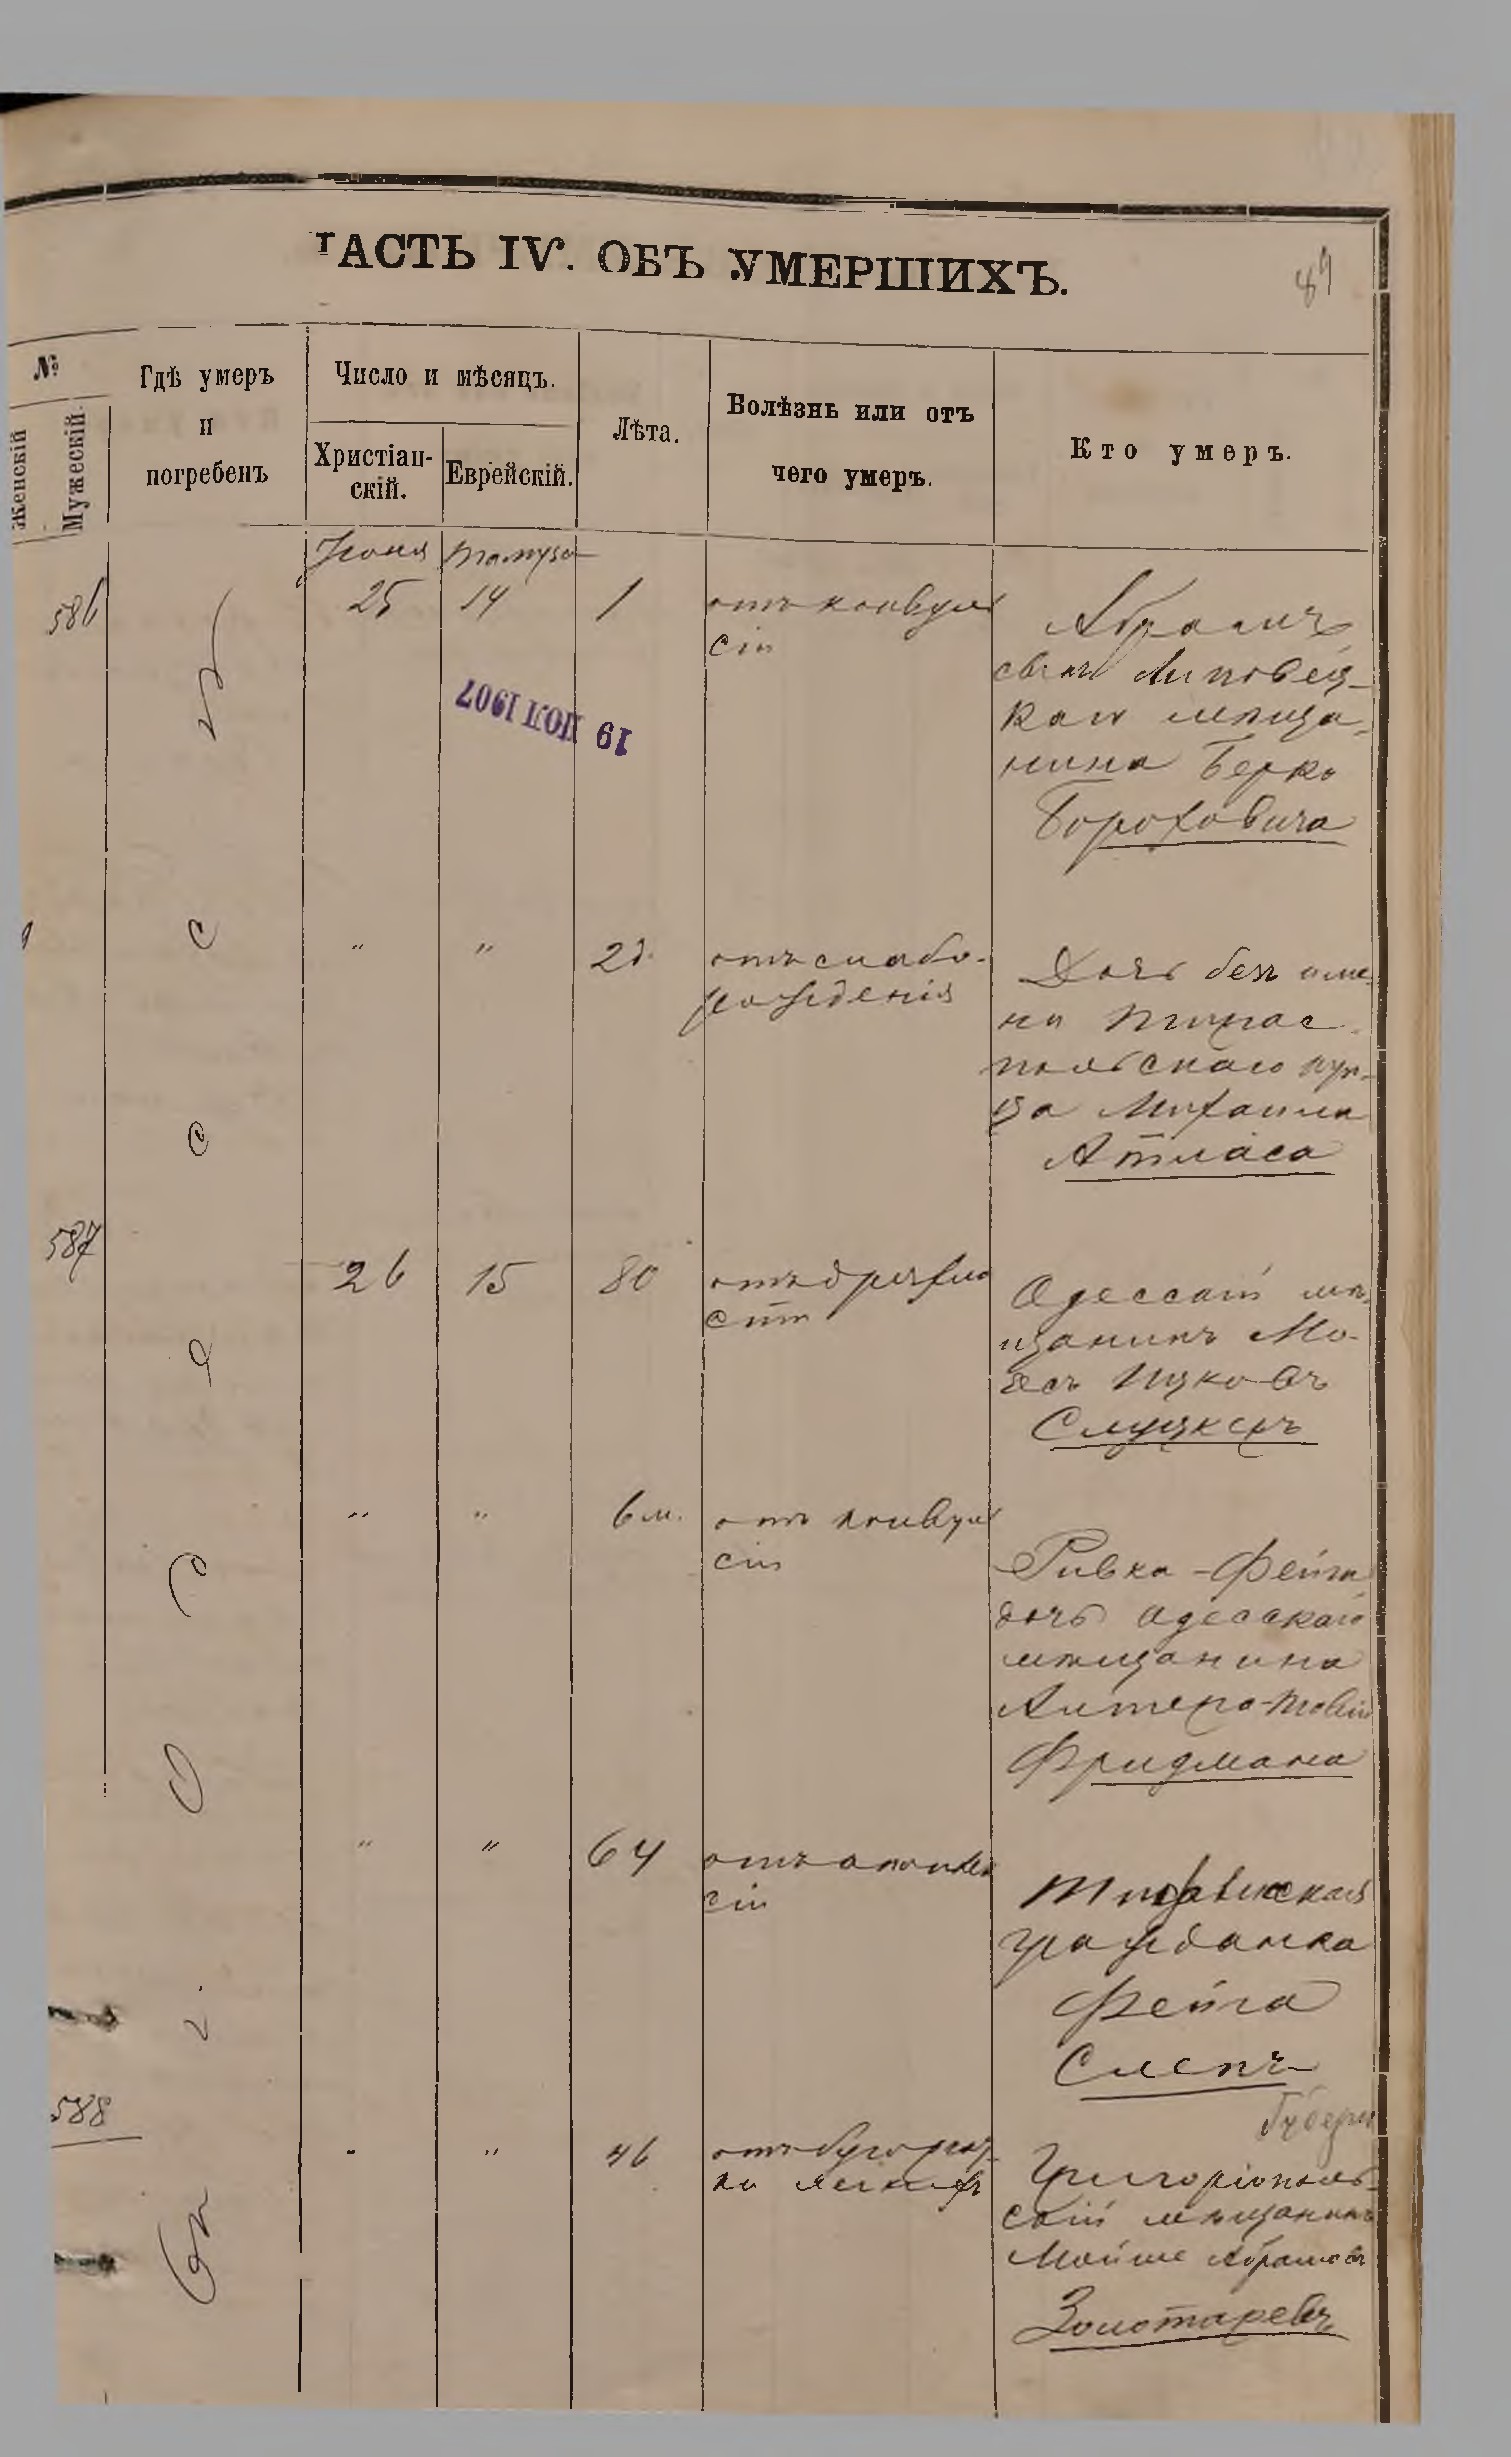 ЧАСТЬ IV. ОБЪ УМЕРШИХЪ.
89
№
Женскій
Мужескій.
Гдѣ умеръ
и
погребенъ
Число и мѣсяцъ.
Христіан-
скій.
Еврейскій.
Лѣта.
Болѣзнь или отъ
чего умеръ.
Кто умеръ.
Іюня Тамуза
586 25 14 1
отъ конвуль
сіи
Абрамъ
сынъ Липовец-
каго мѣща-
нина Берко
Бороховича
19 ІЮЛ 1907
" " 2 д.
отъ слабо-
рожденія
Дочь безъ име
ни Тирас
польскаго куп-
ца Михаила
Атласа
587 26 15 80
отъ дряхло
сти
Одесскій мѣ
щанинъ Мо-
Ицковъ
Слуцкеръ
" " 6 м.
отъ конвуль
сіи
Ривка-Фейга
дочь одесскаго
мѣщанина
Альтера-Товіи
Фридмана
" " 64
отъ апоплек
сіи
гражданка
Фейга
Слепъ
588 " " 46
отъ бугорчат-
ки легкихъ
Григоріополь-
скій мѣщанинъ
Мойше Абрамовъ
Золотаревъ